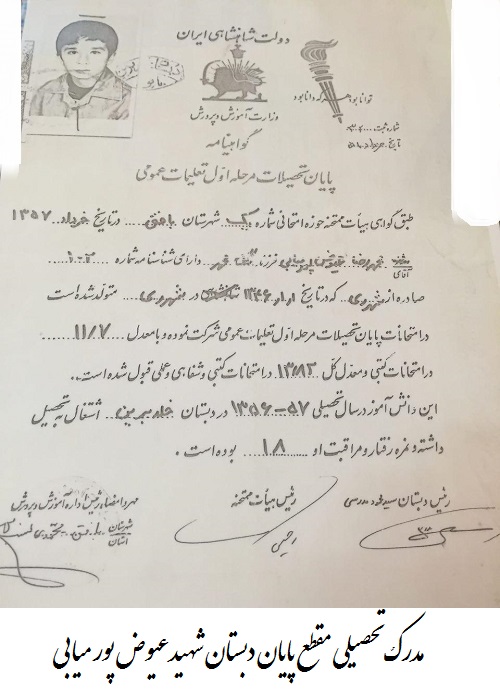 دولت شاهنشاهی ایران
توانا بود هر که دانا بود
وزارت آموزش و پرورش
شماره ثبت
تاریخ
گواهینامه
پایان تحصیلات مرحله اول تعلیمات عمومی
طبق گواهی هیأت ممتحنه حوزه امتحانی شماره یک شهرستان بافق و در تاریخ خرداد ۱۳۵۷
آقای فرزند دارای شناسنامه شماره
صادره از که در تاریخ ۱۳۴۶ در متولد شده است
در امتحانات پایان تحصیلات مرحله اول تعلیمات عمومی شرکت نموده و با معدل ۱۱/۷
در امتحانات کتبی و معدل کل ۱۳/۸۲ در امتحانات کتبی و شفاهی و عملی قبول شده است.
این دانش آموز در سال تحصیلی ۵۷-۱۳۵۶ در دبستان اشتغال به تحصیل
داشته و نمره رفتار و مراقبت او ۱۸ بوده است.
رئیس دبستان
رئیس هیأت ممتحنه
مهر و امضاء رئیس اداره آموزش و پرورش
شهرستان بافق
استان
مدرک تحصیلی مقطع پایان دبستان شهید عیوض پور میابی